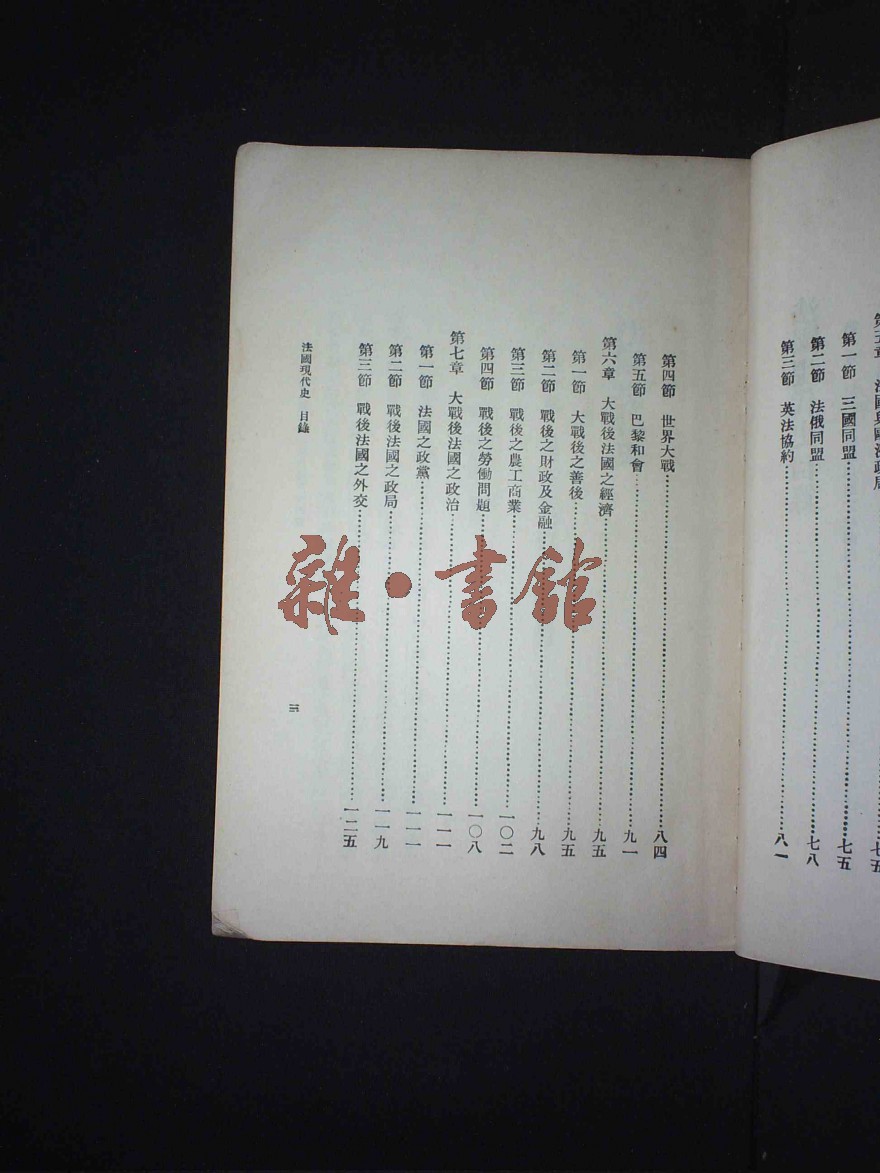 第五章 法國與歐洲政局……七五
第一節 三國同盟……七五
第二節 法俄同盟……七八
第三節 英法協約……八一
第四節 世界大戰……八四
第五節 巴黎和會……九一
第六章 大戰後法國之經濟……九五
第一節 大戰後之善後……九五
第二節 戰後之財政及金融……九八
第三節 戰後之農工商業……一〇二
第四節 戰後之勞働問題……一〇八
第七章 大戰後法國之政治……一一一
第一節 法國之政黨……一一一
第二節 戰後法國之政局……一一九
第三節 戰後法國之外交……一二五
法國現代史 目錄
三
雜·書館